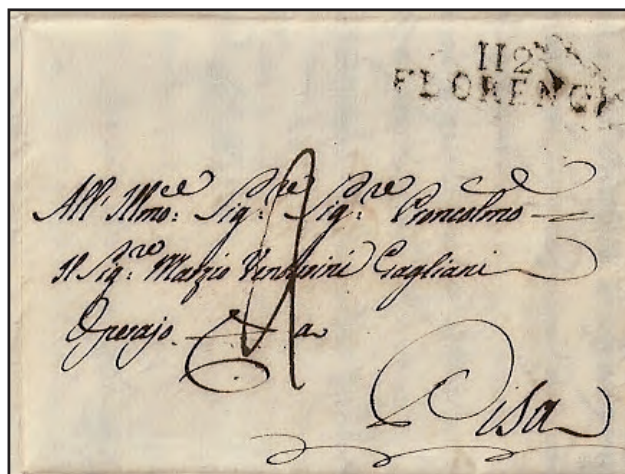 112
FLORENC
All' Illmo: Sig:re Sig:re Proncolmo
Il Sig:re Marzio Venturini Gagliani
Operajo
a
Pisa